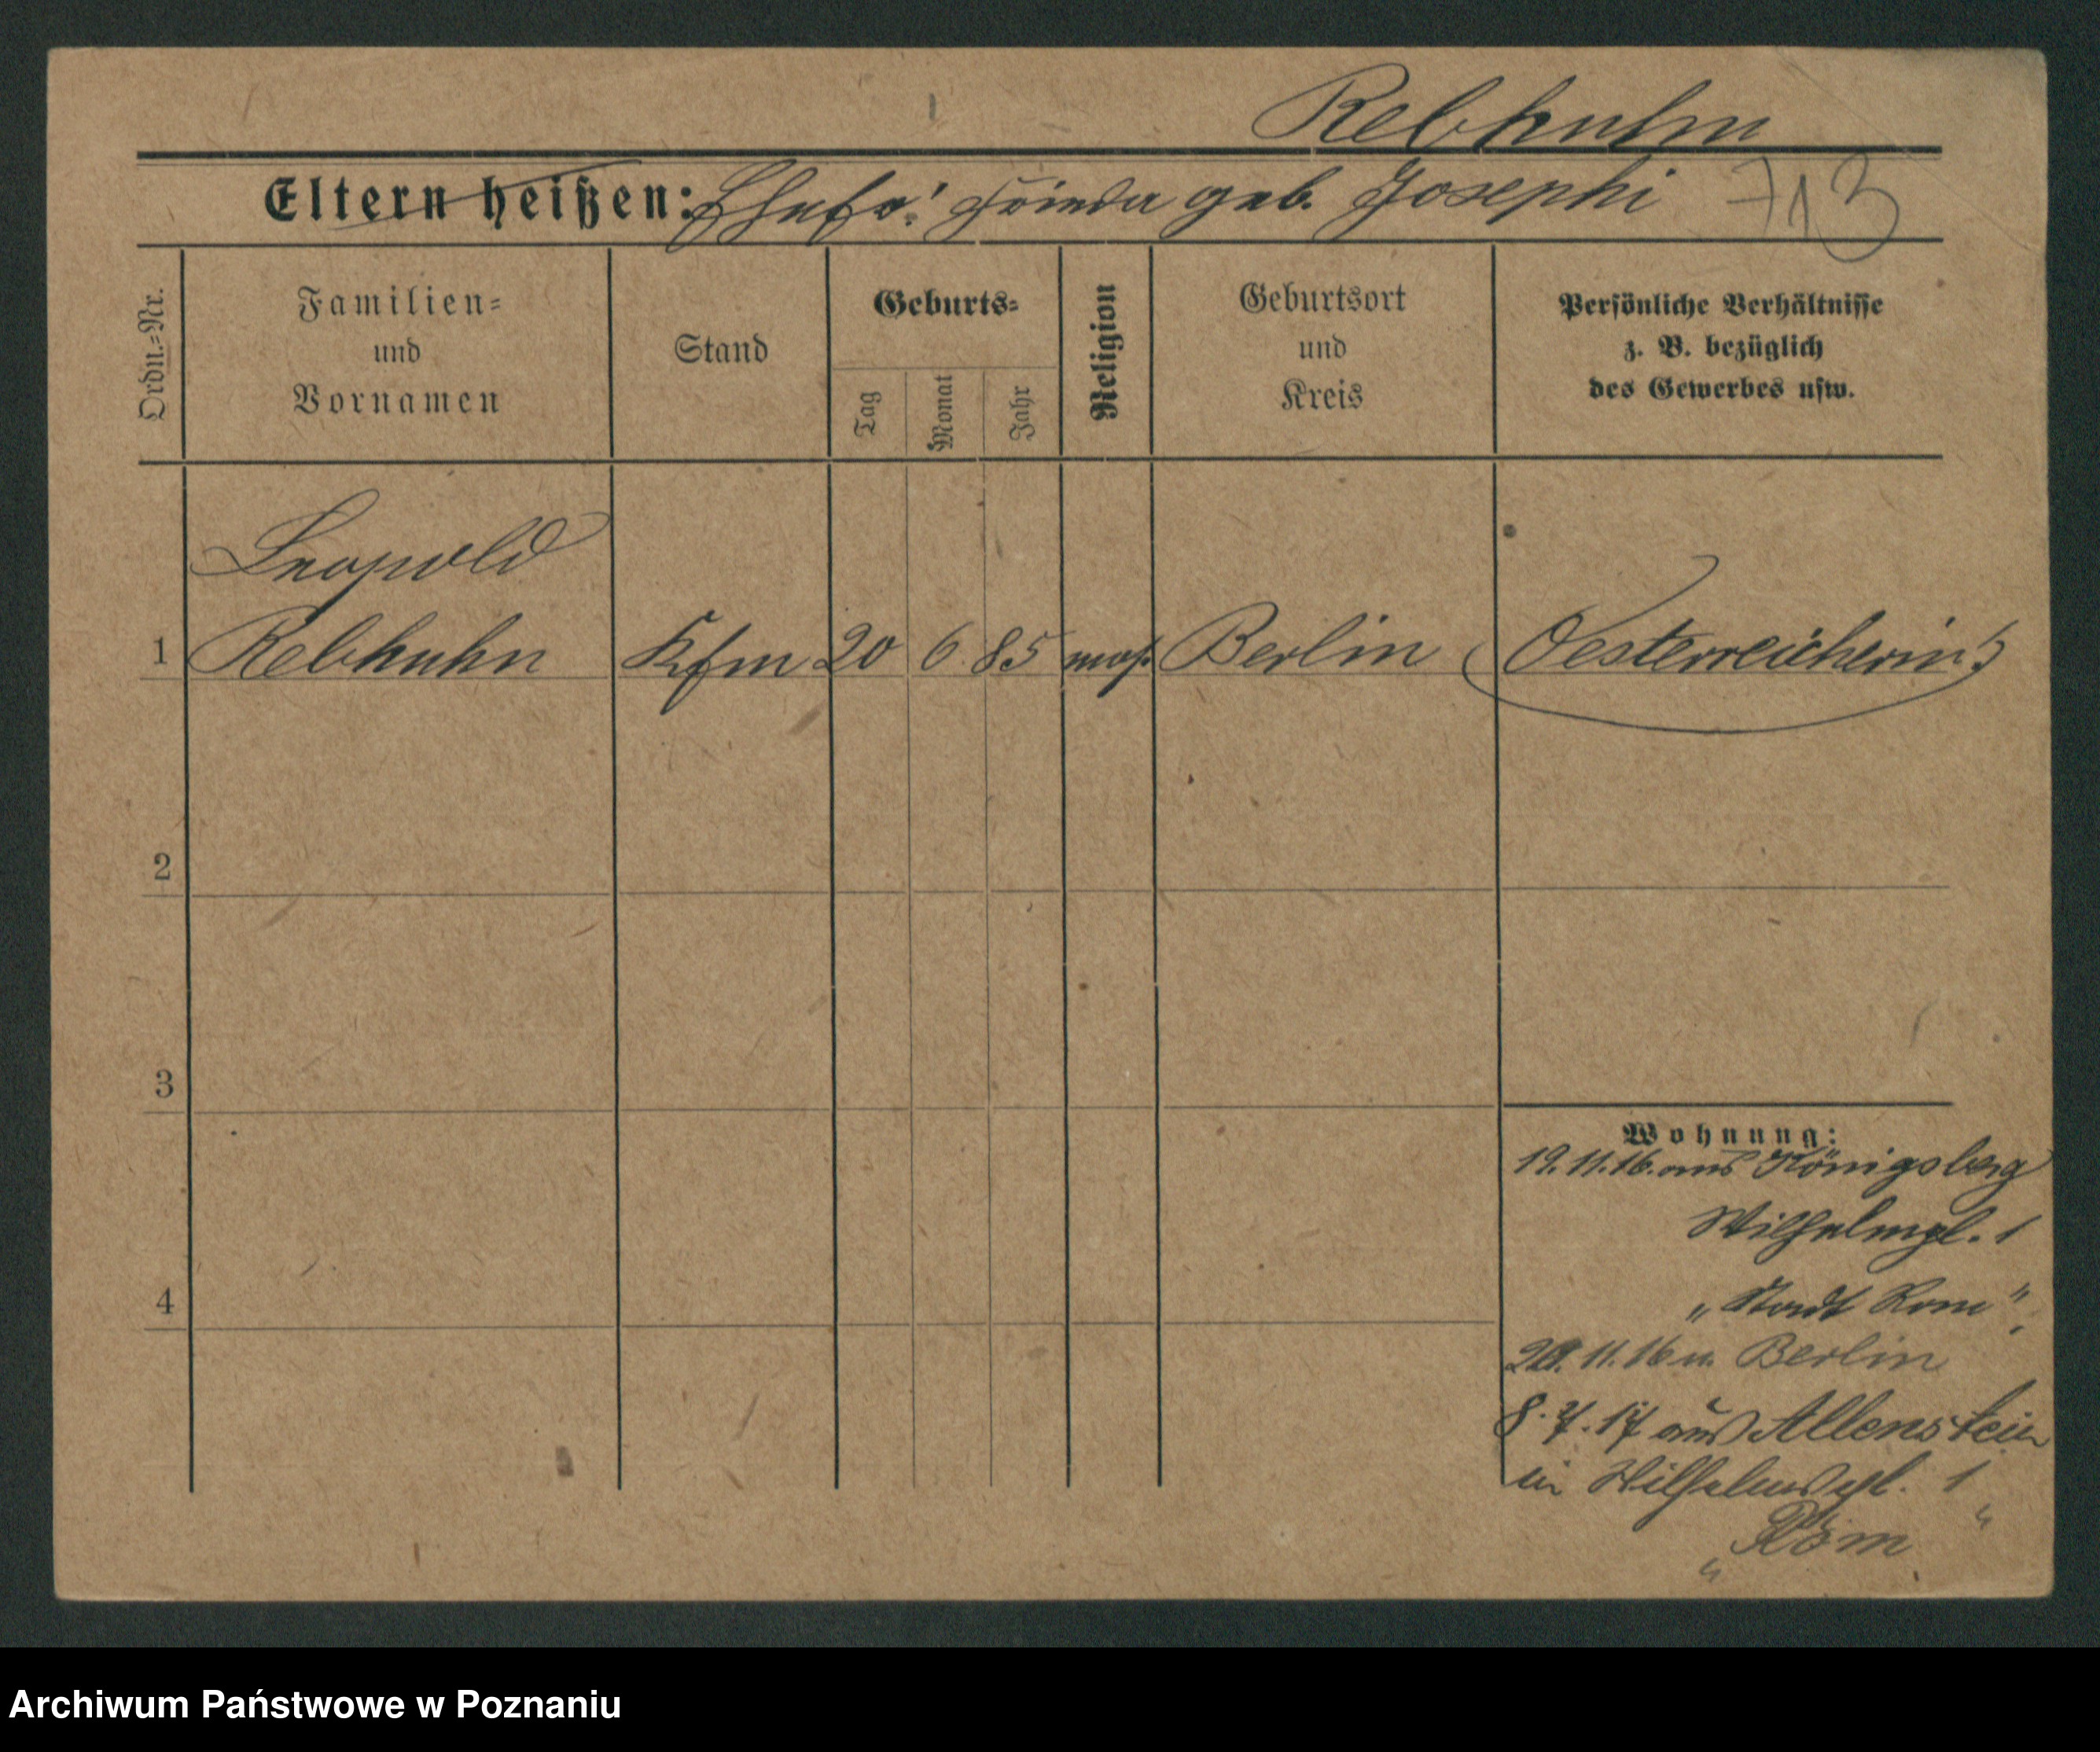 Rebhuhn
Eltern heißen: Ehefr: Frieda geb. Josephi 713
Ordn.=Nr.
Familien=
und
Vornamen
Stand
Geburts=
Tag
Monat
Jahr
Religion
Geburtsort
und
Kreis
Persönliche Verhältnisse
z. B. bezüglich
des Gewerbes usw.
Leopold
1 Rebhuhn Kfm 20 6 85 mos. Berlin (Oesterreicherin?)
2
3
4
Wohnung:
19.11.16. aus Königsberg
Wilhelmpl. 1
„Stadt Rom"
11.16 n. Berlin
8. 7. 17 aus Allenstein
in Wilhelmspl. 1
„Rom"
Archiwum Państwowe w Poznaniu